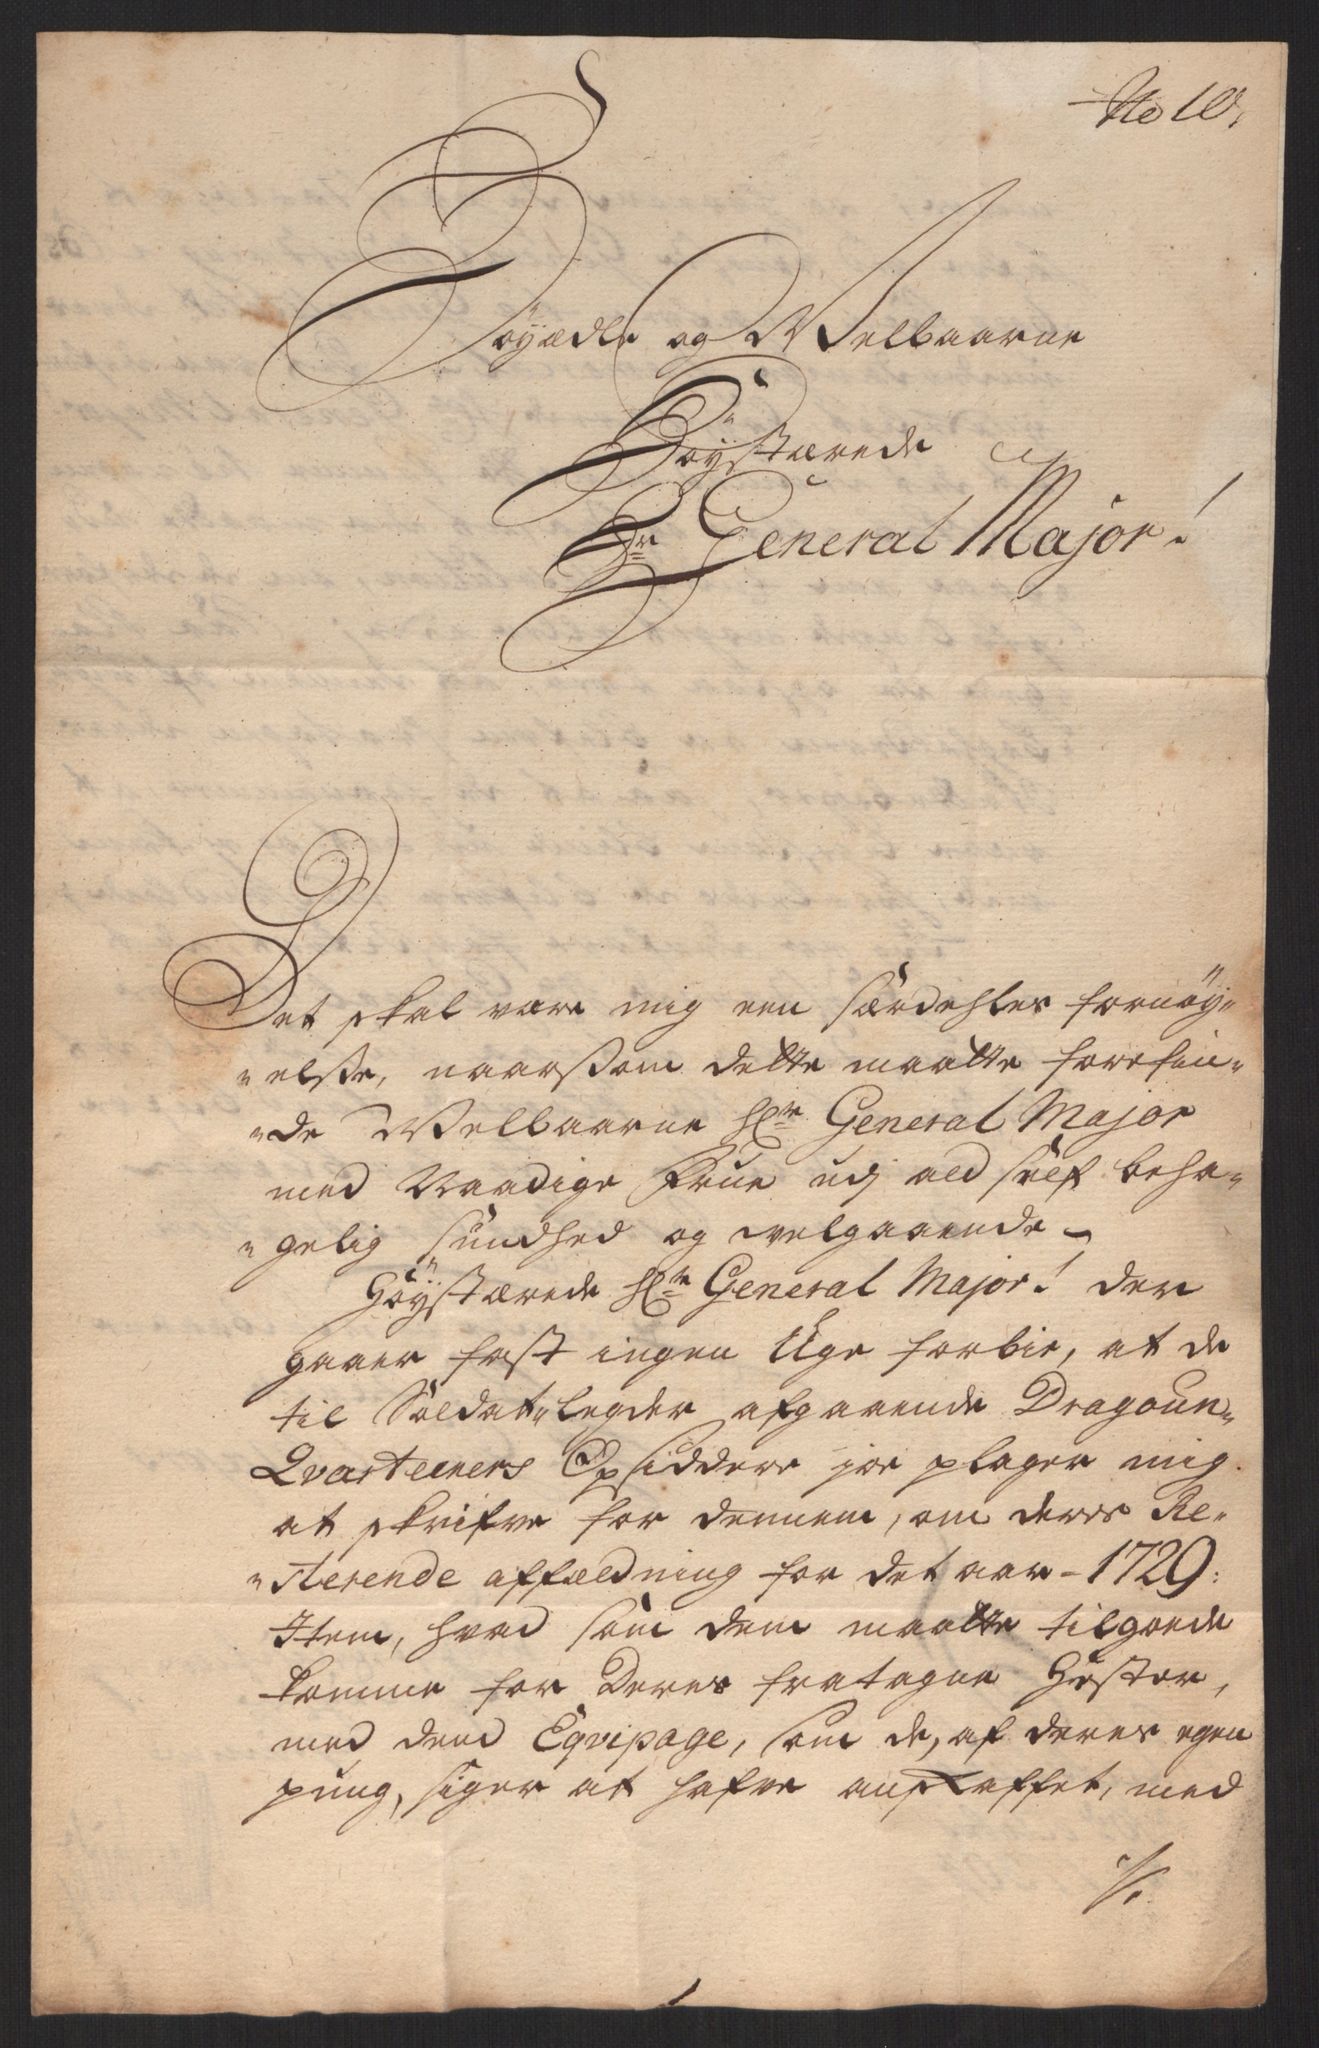 No 10.
Høyædle og Welbaarne
Høystærede
Hr General Major!
Det skal være mig een særdehles fornøy„
„else, naarsom dette maatte forefin„
„de Welbaarne Hr General Major
med Naadige Frue udj ald sælf beha„
„gelig sundhed og velgaaende.
Høystærede Hr General Major! der
gaaer fast ingen Uge forbie, at de
til Soldat„legder afgaaende Dragoun„
Qvarteeners Opsiddere joe plager mig
at skrifve for dennem, om deres Re„
„sterende affældning for det aar 1729:
Item, hvad som dem maatte tilgoede
komme for Deres fratagne Hester,
med dend Eqvipage, som de, af deres egen
pung, siger at hafve anskaffet, med
./.